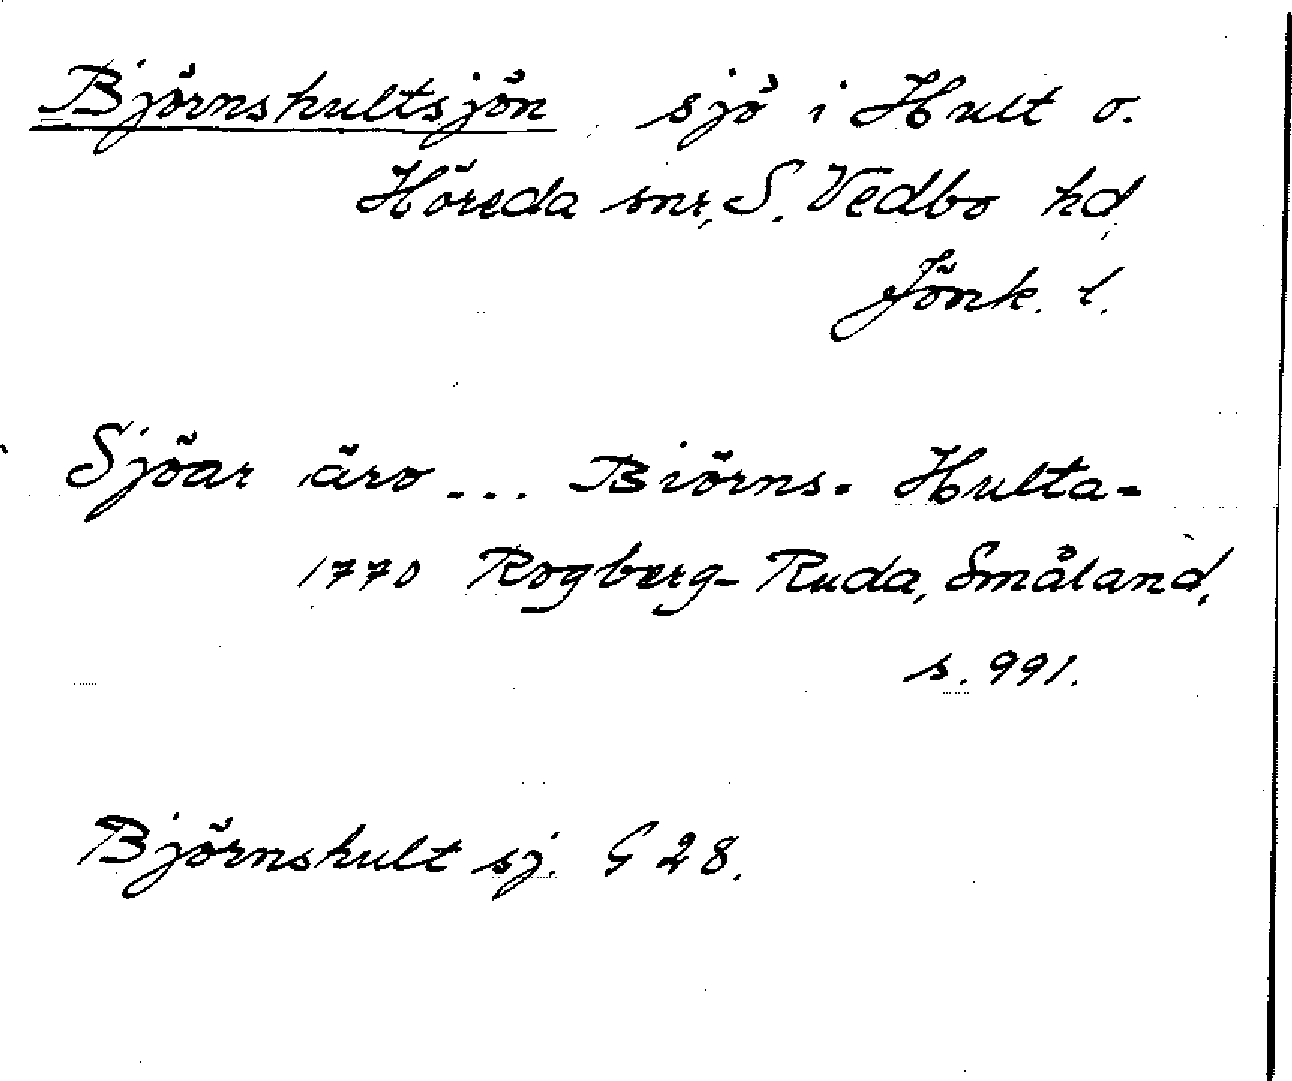 Björnshultsjön sjö i Hult o.
Höreda snr, S. Vedbo hd,
Jönk. l.
Sjöar äro ... Biörns- Hulta-
1770 Rogberg-Ruda, Småland,
s. 991.
Björnshult sj. G 28.